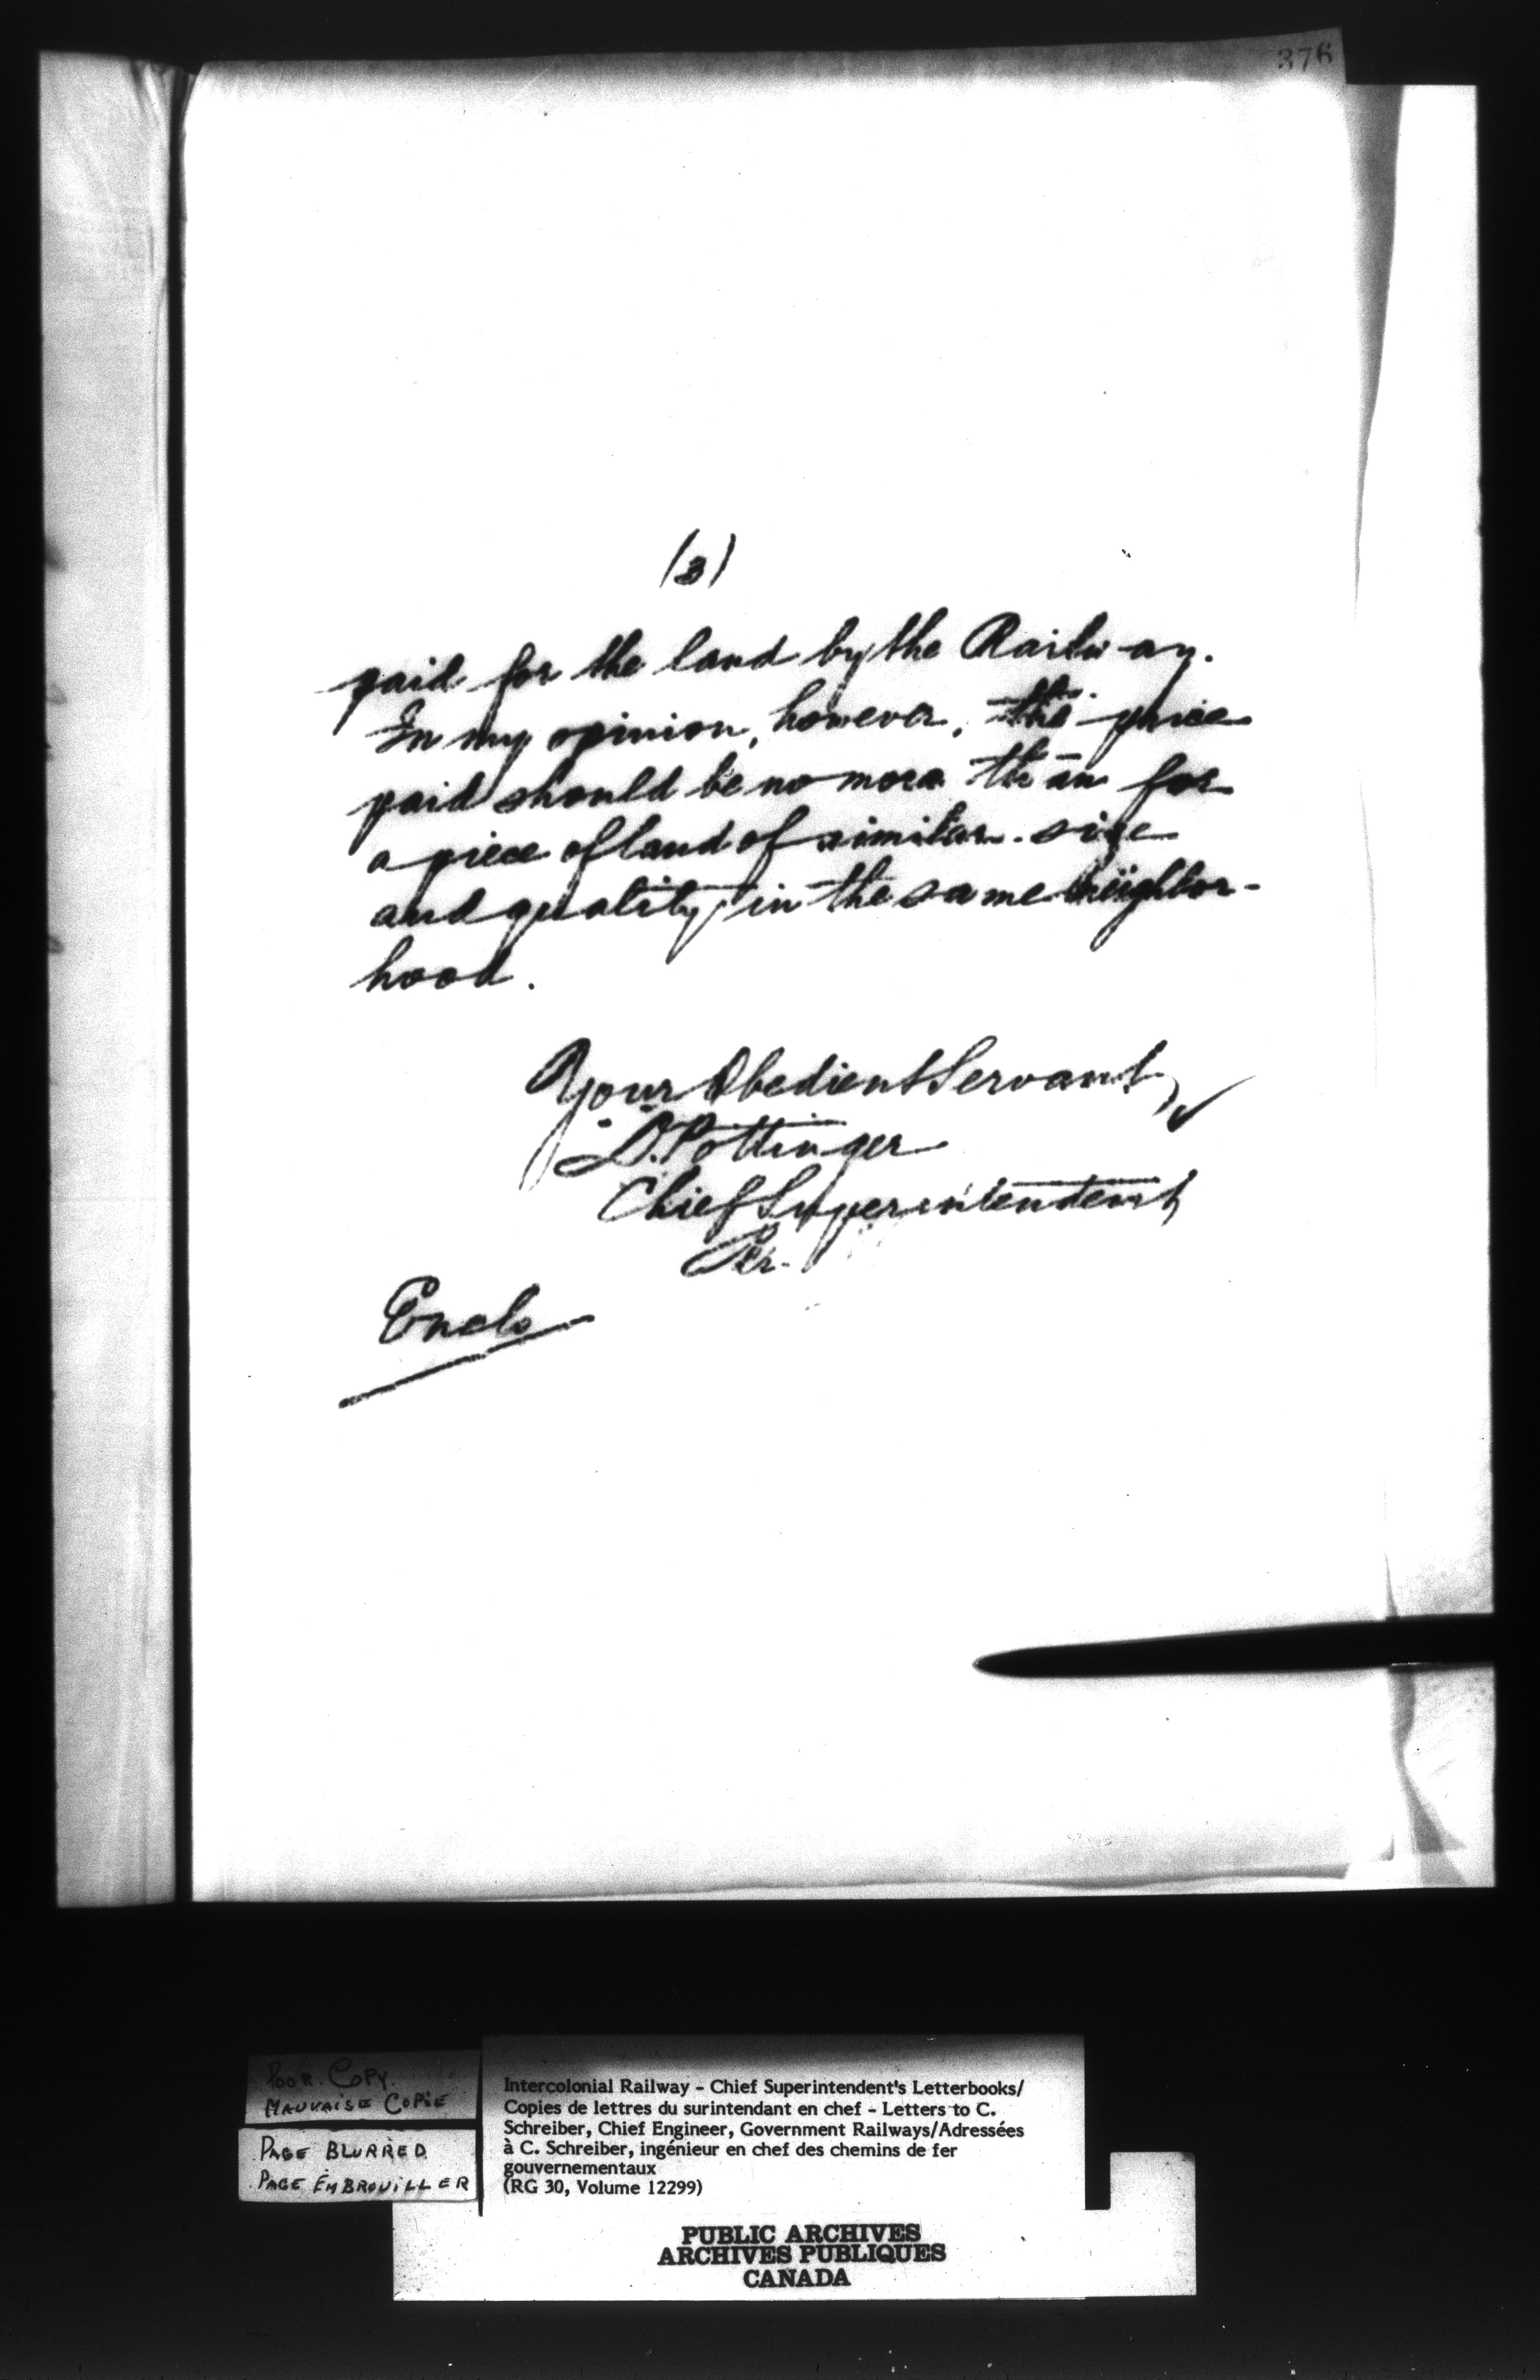 376
(3)
paid for the land by the Railway.
In my opinion, however, the price
paid should be no more than for
a piece of land of similar size
and quality in the same neighbor-
hood.
Your Obedient Servant,
D. Pottinger
Chief Superintendent
Per.
Encls
POOR COPY.
MAUVAISE COPIE
PAGE BLURRED
PAGE EMBROUILLER
Intercolonial Railway - Chief Superintendent's Letterbooks/
Copies de lettres du surintendant en chef - Letters to C.
Schreiber, Chief Engineer, Government Railways/Adressées
à C. Schreiber, ingénieur en chef des chemins de fer
gouvernementaux
(RG 30, Volume 12299)
PUBLIC ARCHIVES
ARCHIVES PUBLIQUES
CANADA